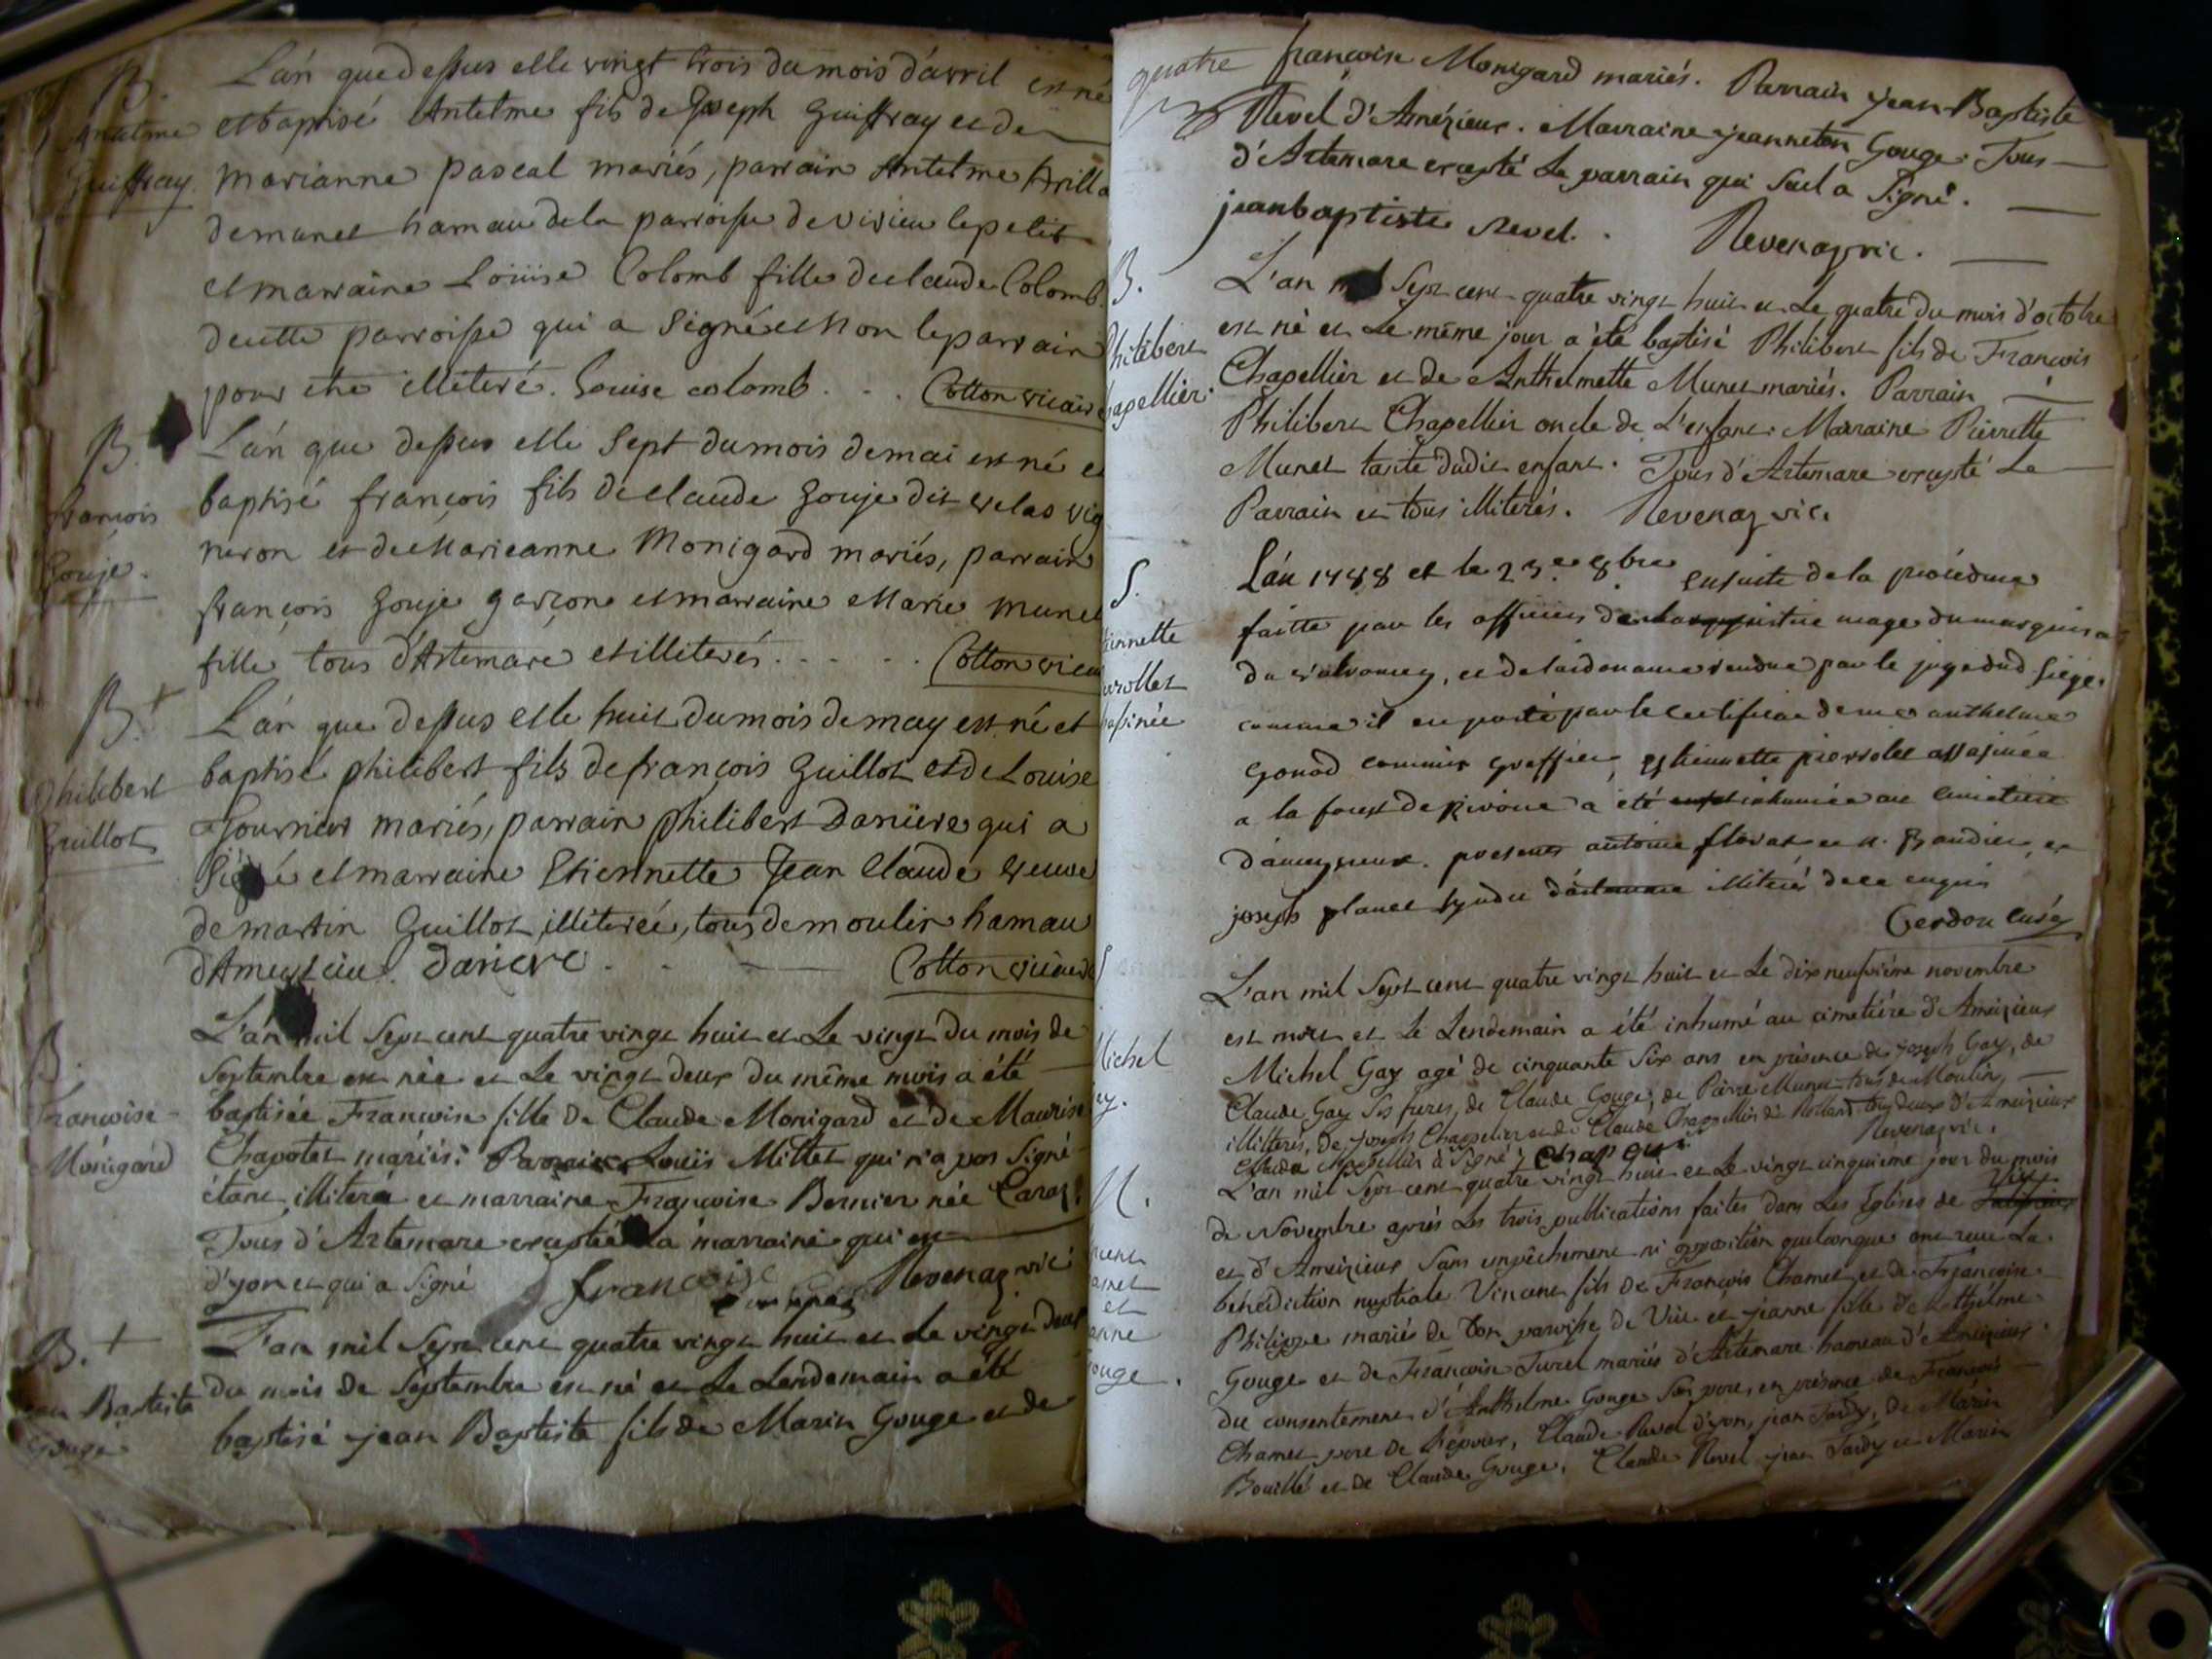 B.
Antelme
Guiffray
L'an que dessus et le vingt trois du mois d'avril est né
et baptisé Antelme fils de Joseph Guiffray et de
Marianne Pascal mariés, parrain Antelme
de munet hamau de la parroisse de Vivieu le petit
et marraine Louise Colomb fille de Claude Colomb
de cette parroisse qui a signé et non le parrain
pour etre illiteré. Louise colomb . . . Cotton vicaire
B.
François
Gouje.
L'an que dessus et le sept du mois de mai est né et
baptisé françois fils de Claude Gouje dit velas vig
neron et de Marieanne Monigard mariés, parrain
françois Gouje garçon et marraine Marie munet
fille tous d'Artemare et illiterés . . . . . Cotton vicai
B. +
Philibert
Guillot
L'an que dessus et le huit du mois de may est né et
baptisé philibert fils de françois Guillot et de Louise
mariés, parrain philibert Daniere qui a
Signé et marraine Etiennette Jean Claude veuve
de martin Guillot, illiterée, tous de moulin hamau
Daniere . . Cotton vicaire
B.
Francoise
Monigard
L'an mil Sept cent quatre vingt huit et Le vingt du mois de
Septembre est née et Le vingt deux du même mois a été
baptisée Francoise fille de Claude Monigard et de Maurise
Chapotet mariés. Parrain Louis Millet qui n'a pas Signé
étant illiteré et marraine Françoise Bernier née Caraz.
Tous d'Artemare excepté la marraine qui est
d'yon et qui a Signé francoise Revenaz vic
B. +
Jean Baptiste
Gouge
L'an mil Sept cent quatre vingt huit et le vingt deux
Du mois de Septembre est né et Le Lendemain a été
baptisé jean Baptiste fils de Marin Gouge et de
quatre françoise Monigard mariés. Parrain jean-Baptiste
Revel d'Amézieux. Marraine jeanneton Gouge. Tous
d'Artemare excepté Le parrain qui Seul a Signé.
jeanbaptiste Revel. . Revenaz vic.
B.
Philibert
Chapellier.
L'an mil Sept cent quatre vingt huit et Le quatre du mois d'octobre
est né et Le même jour a été baptisé Philibert fils de Francois
Chapellier et de Anthelmette Munet mariés. Parrain
Philibert Chapellier oncle de L'enfant. Marraine Pierrette
Munet tante dudit enfant. Tous d'Artemare excepté Le
Parrain et tous illiterés. Revenaz vic.
S.
L'an 1788 et le 23e 8bre ensuite de la procédure
faitte par les officiers de justice mage du marquisat
du valromey, et de l'ordonnance rendue par le juge dud siege
comme il en porte par le certificat de me anthelme
gonod commis greffier, estiennette pierrolet assasinée
a la forest de a été inhumée au cimetiere
d'ameyzieux. presents antoine flavat et Baudin, et
joseph planet syndic d'artemare illiterés de ce enquis
Gerdon curé
S
Michel
L'an mil Sept cent quatre vingt huit et Le dix neuvième novembre
est mort et Le Lendemain a été inhumé au cimetière d'Ameizieux
Michel Gay agé de cinquante Six ans en présence de joseph Gay, de
Claude Gay Ses freres, de Claude Gouge, de Pierre Munet tous de Moulin,
illitterés, de joseph Chapelier et de Claude Chappellier dit Rolland tous deux d'Ameizieux
Claude Chapellier a signé Revenaz vic.
M.
L'an mil Sept cent quatre vingt huit et Le vingt cinquieme jour du mois
de Novembre après Les trois publications faites dans Les Eglises de Vieu
et d'Ameizieux Sans empêchement ni opposition quelconque ont reçu La
bénédiction nuptiale Vincent fils de François Chamet et de Françoise
Philippe mariés de Don paroisse de Vieu et jeanne fille de Anthelme
Gouge et de Francoise Juret mariés d'Artemare hameau d'Ameizieux.
Du consentement d'Anthelme Gouge Son pere, en présence de François
Chamet pere de L'époux, Claude Revel d'yon, jean Tardy, de Marin
Bouillé et de Claude Gouge. Claude Revel jean Tardy et Marin